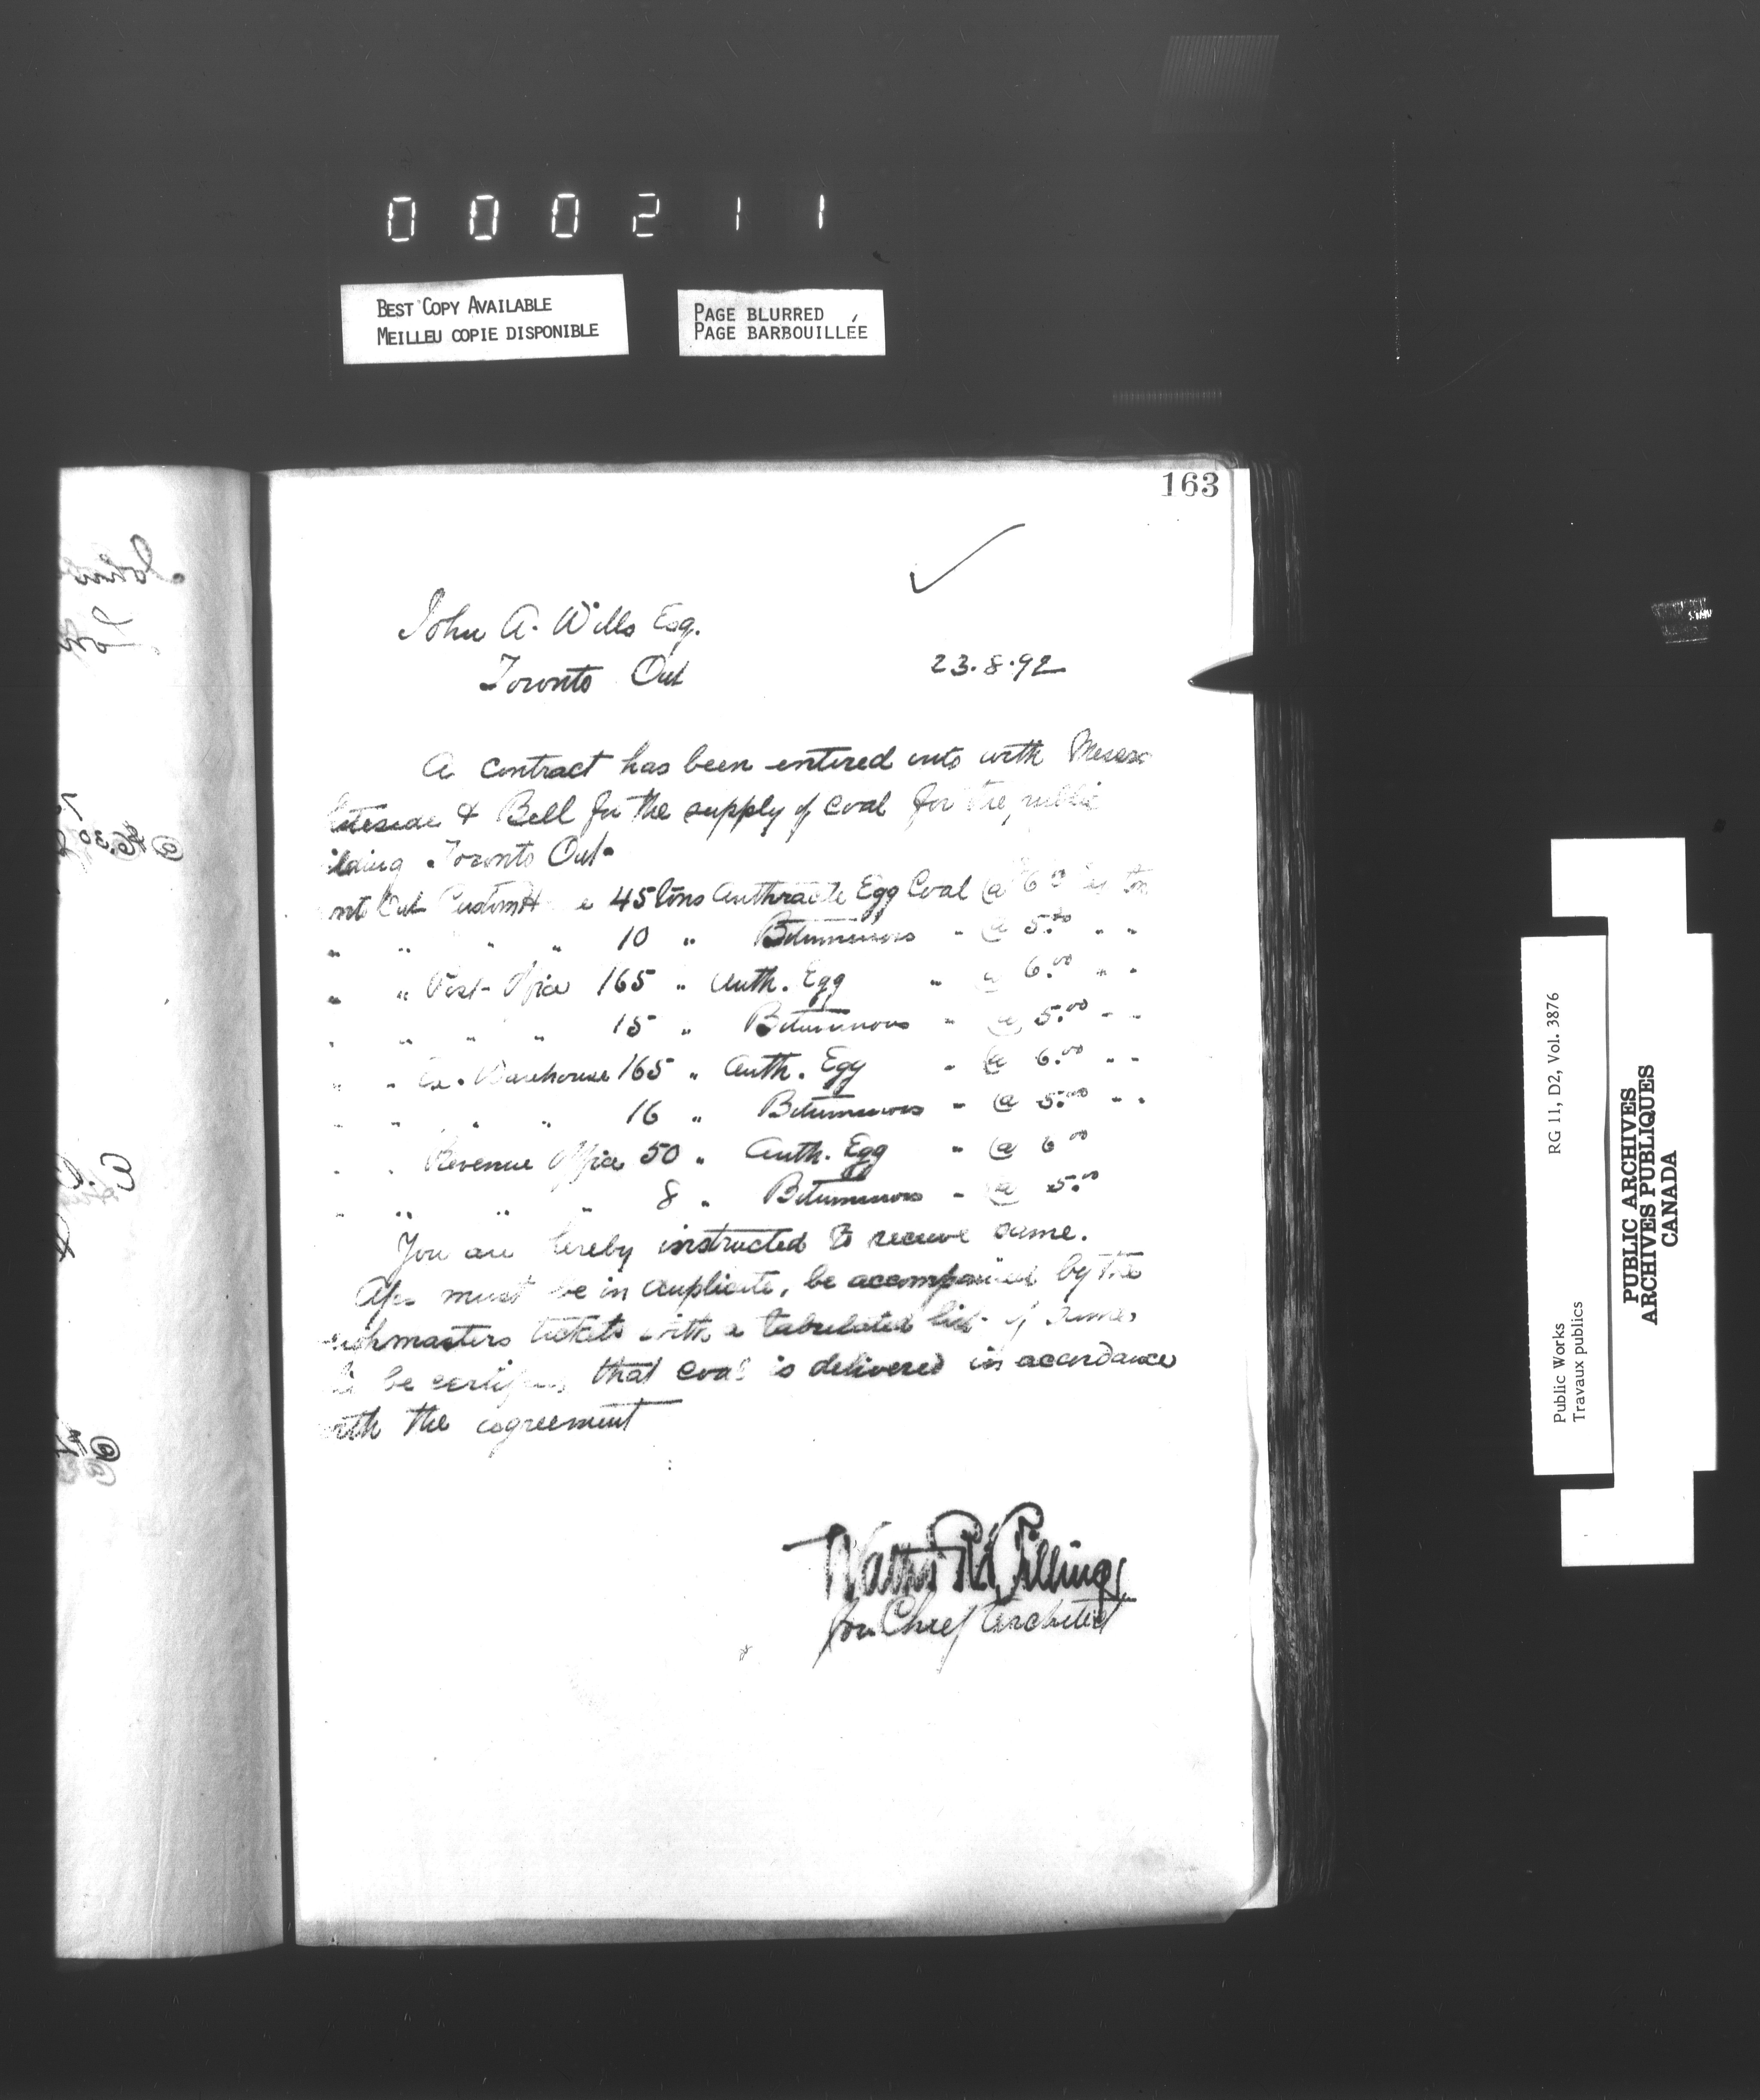 000211
BEST COPY AVAILABLE
MEILLEU COPIE DISPONIBLE
PAGE BLURRED
PAGE BARBOUILLÉE
163
John A. Wills Esq.
Toronto Ont
23.8.92
A contract has been entered into with Messrs
iteside & Bell for the supply of coal for the public
ilding Toronto Ont.
nto Ont Custom H e 45 tons Anthracite Egg Coal @ 6 per ton
" " " " 10 " Bituminous " @ 5.00 " "
" " Post-Office 165 " Anth. Egg " @ 6.00 " "
" " " " 15 " Bituminous " @ 5.00 " "
" " Ex. Warehouse 165 " Anth. Egg " @ 6.00 " "
" " " " 16 " Bituminous " @ 5.00 " "
" " Revenue Office 50 " Anth. Egg " @ 6.00
" " " " 8 " Bituminous " @ 5.00
You are hereby instructed to receive same.
A/cs must be in duplicate, be accompanied by the
ighmasters tickets with a tabulated list of same,
be certified that coal is delivered in accordance
with the agreement
Walter R. Billings
for Chief Architect
RG 11, D2, Vol. 3876
Public Works
Travaux publics
PUBLIC ARCHIVES
ARCHIVES PUBLIQUES
CANADA